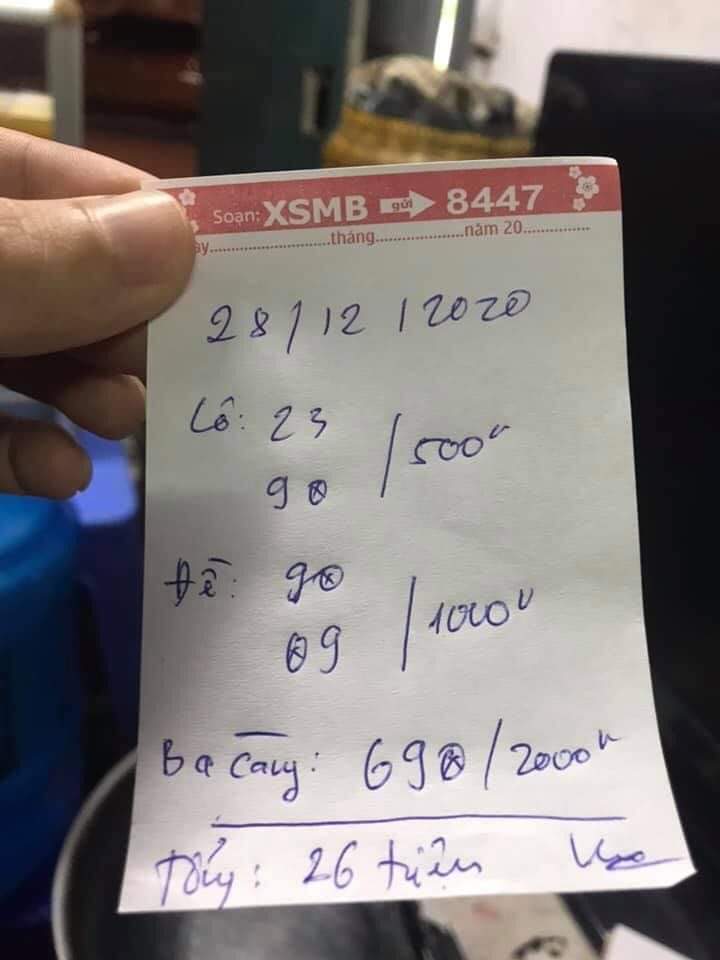 Soạn: XSMB gửi 8447
ày..............................tháng......................năm 20.................
28/12/2020
Lô: 23 /500k
90
Đề: 90 /1000k
09
Ba Càng: 690/2000k
Tổng: 26 triệu